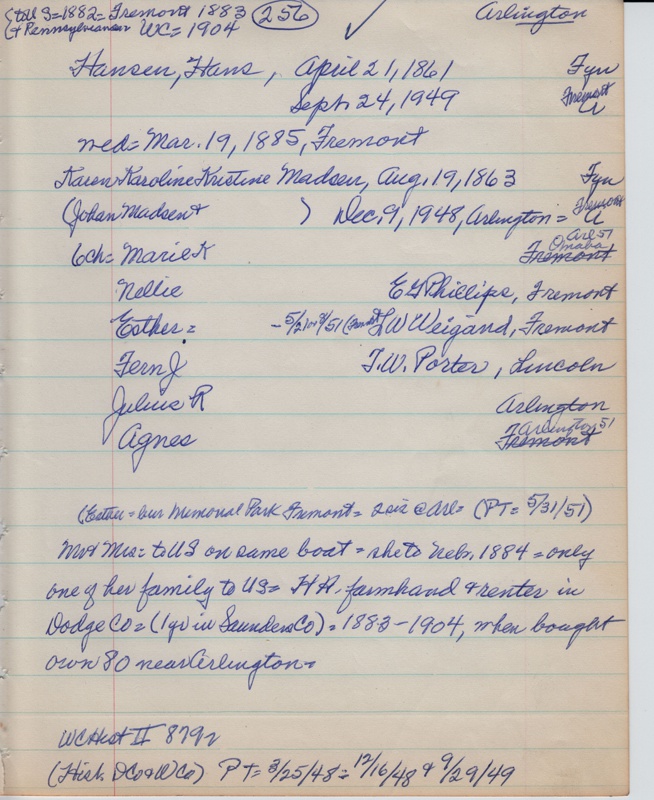 (to U S=1882= Fremont 1883 (256) ✓ Arlington
(+ Pennsylvania WC=1904
Hansen, Hans, April 21, 1861 Fyn
Sept. 24, 1949 Fremont A
wed= Mar. 19, 1885, Fremont
Karen Karoline Kristine Madsen, Aug. 19, 1863 Fyn
(Johan Madsen + ) Dec. 9, 1948, Arlington = Fremont A
Arl 51
Omaha
6ch= Marie K Fremont
Nellie E G Phillips, Fremont
Esther = -5/21 51 L W Weigand, Fremont
Fern J T.W. Porter, Lincoln
Julius R Arlington
Arlington 51
Agnes Fremont
(Esther = bur Memorial Park Fremont = 2 @ Arl= (PT= 5/31/51)
Mr + Mrs= to US on same boat = she to Nebr. 1884 = only
one of her family to US= HH. farmhand + renter in
Dodge Co = (1 yr in Saunders Co) = 1883-1904, when bought
own 80 near Arlington=
WC Hist II 879
(Hist. DCo + WCo) PT= 3/25/48 = 12/16/48 + 9/29/49